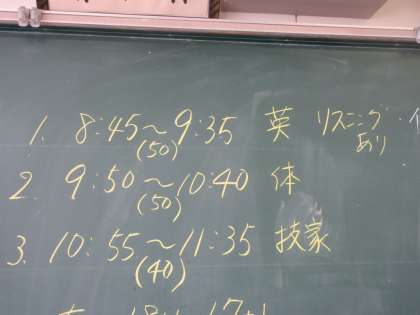 1. 8:45〜9:35 英 リスニング
(50) あり
2. 9:50〜10:40 体
(50)
3. 10:55〜11:35 技家
(40)